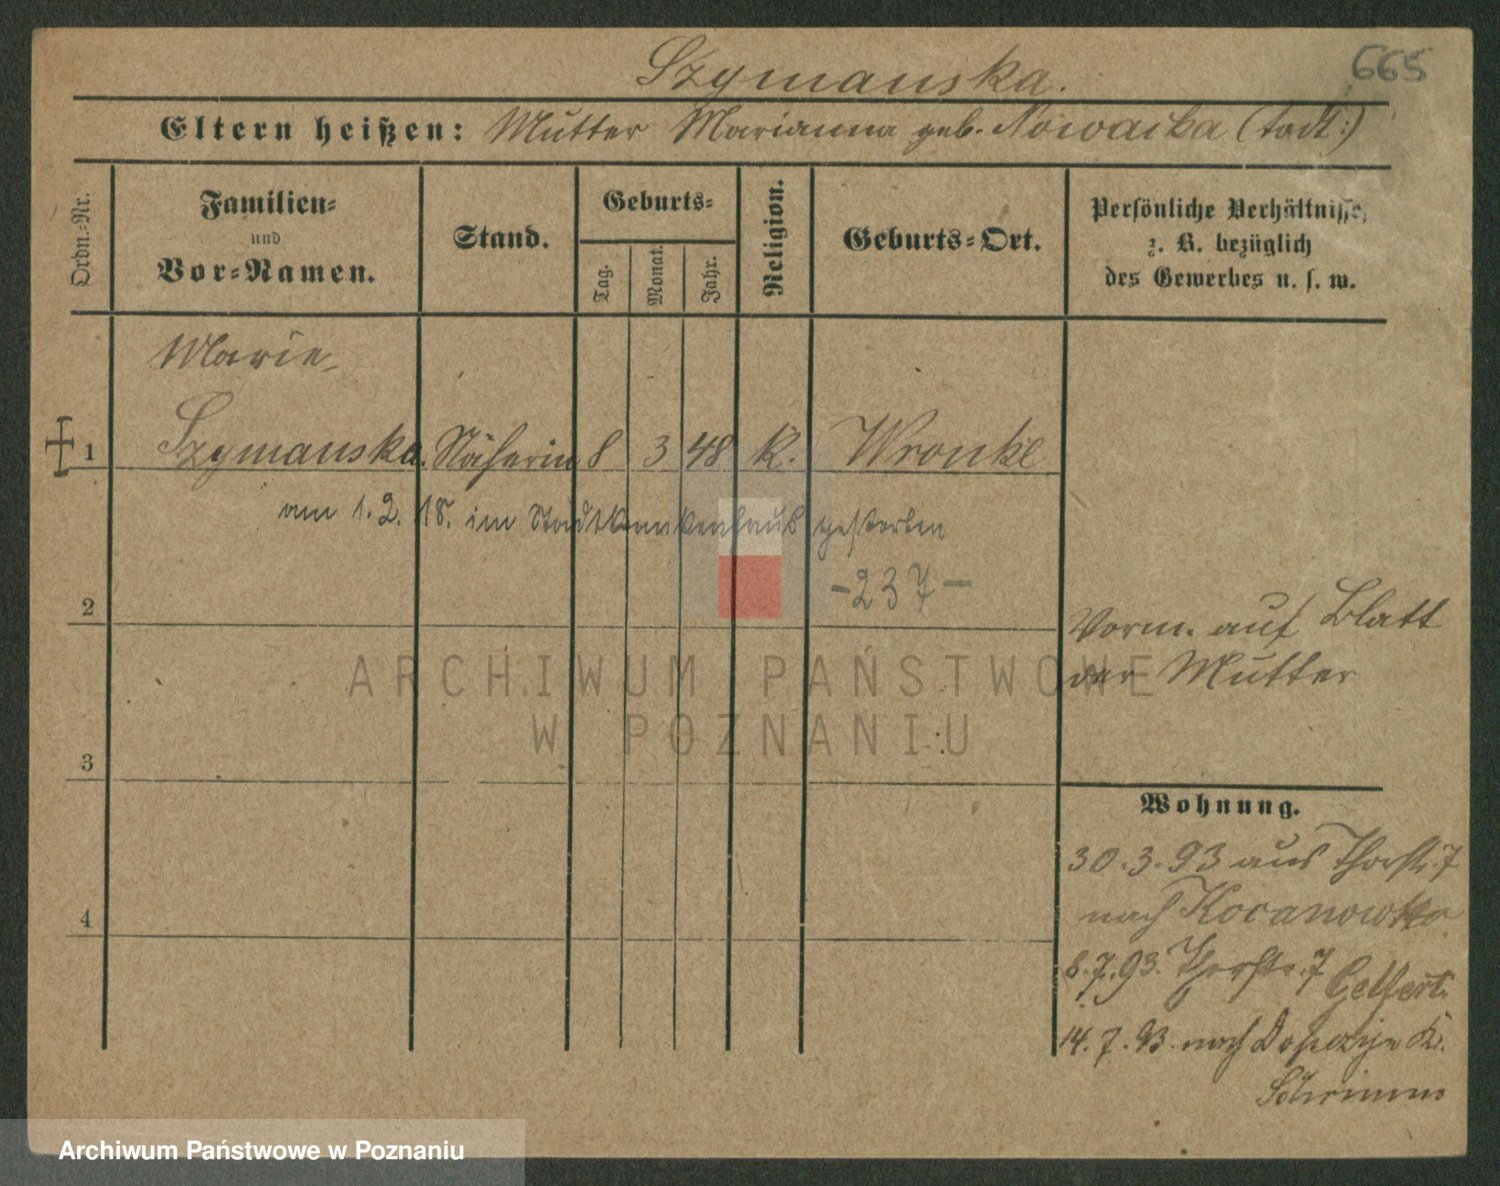 665
Szymanska.
Eltern heißen: Mutter Marianna geb. Nowacka (todt:)
Ordn.-Nr.
Familien-
und
Vor-Namen.
Stand.
Geburts-
Tag.
Monat.
Jahr.
Religion.
Geburts-Ort.
Persönliche Verhältnisse,
z. B. bezüglich
des Gewerbes u. s. w.
Marie
1 Szymanska. Näherin 8 3 48 k. Wronke
am 1. 2. 18. im Stadtkrankenhaus gestorben
-237-
2
Vorm. auf Blatt
der Mutter
ARCHIWUM PAŃSTWOWE
W POZNANIU
3
Wohnung.
30.3.93 aus Thorstr. 7
nach
4
8.7.93. Thorstr. 7
14.7.93 nach Kr.
Schrimm
Archiwum Państwowe w Poznaniu